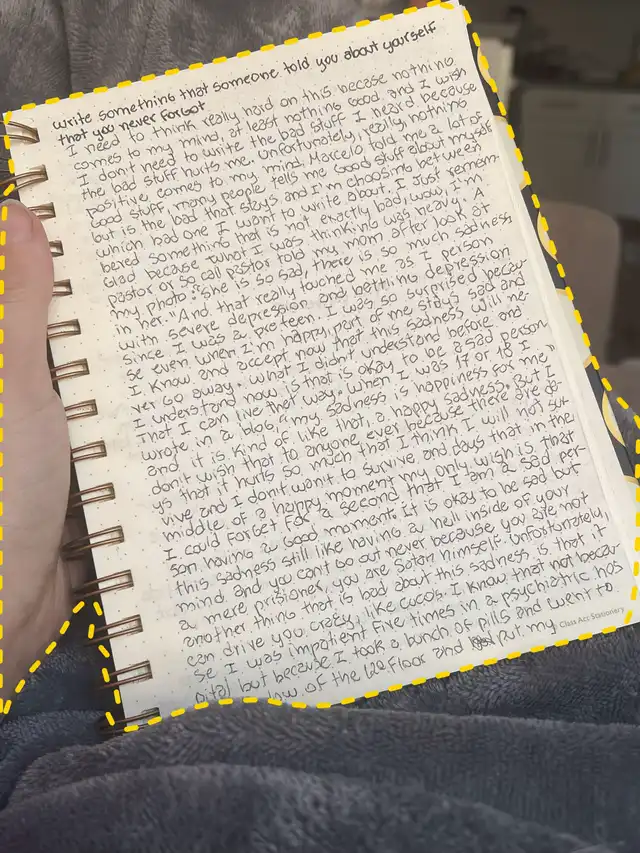 write something that someone told you about yourself
that you never forgot
I need to think really hard on this becase nothing
comes to my mind, at least nothing good and I wish
I don't need to write the bad stuff I heard because
the bad stuff hurts me. Unfortunately, really, nothing
positive comes to my mind. Marcelo told me a lot of
good stuff, many people tells me good stuff about myself
but is the bad that stays and I'm choosing between
which bad one I want to write about. I just remem
bered something that is not exactly bad, wow, I'm
glad because what I was thinking was heavy. "A
pastor or so call pastor told my mom after look at
my photo: "she is so sad, there is so much sadness
in her." And that really touched me as I person
with severe depression and battling depression
since I was a pre teen. I was so surprised becau
se even when I'm happy, part of me stays sad and
I know and accept now that this sadness will ne-
ver go away. What I didn't understand before and
I understand now is that is okay to be a sad person
That I can live that way. When I was 17 or 18 I
wrote in a blog, "my sadness is happiness for me"
and it is kind of like that, a happy sadness. But I
don't wish that to anyone ever because there are da-
ys that it hurts so much that I think I will not sur
vive and I don't want to survive and days that in the
middle of a happy moment my only wish is that
I could forget for a second that I am a sad per-
son having a good moment. It is okay to be sad but
this sadness still like having a hell inside of your
mind and you can't go out never because you are not
a mere prisioner, you are Satan himself. Unfortunately,
another thing that is bad about this sadness is that it
can drive you crazy, like cucos. I know that not beca-
se I was impatient five times in a psychiatric hos
pital but because I took a bunch of pills and went to
low of the 6th floor and put my
Class Acc Stationery